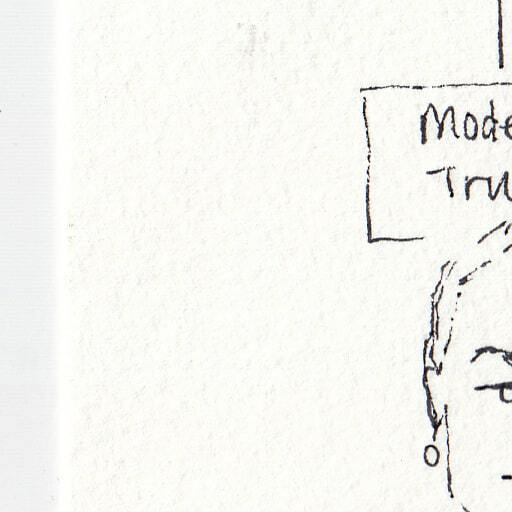 Mode
Tru